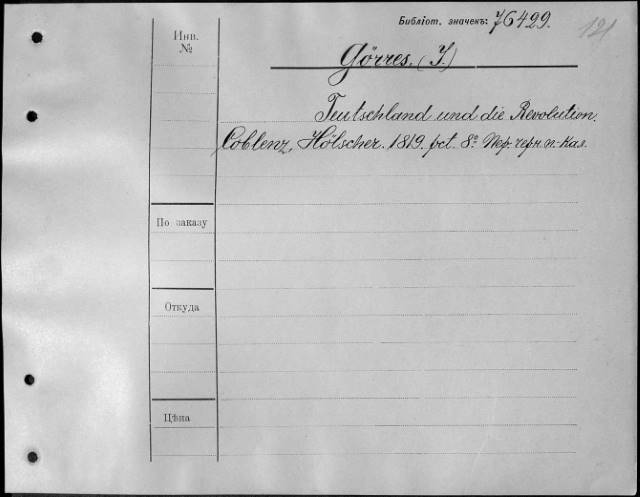 Библіот. значекъ: 76429.
121
Инв.
№
Görres. (J.)
Teutschland und die Revolution.
Coblenz, Hölscher. 1819. pct. 8º. Пер. черн. п.-кал.
По заказу
Откуда
Цѣна